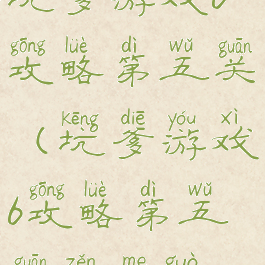 gōng lüè dì wǔ guān
攻略第五关
kēng diē yóu xì
(坑爹游戏
gōng lüè dì wǔ
6攻略第五
guān zěn me guò